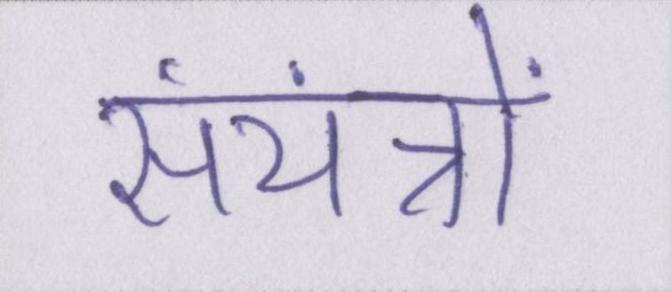 संयंत्रों